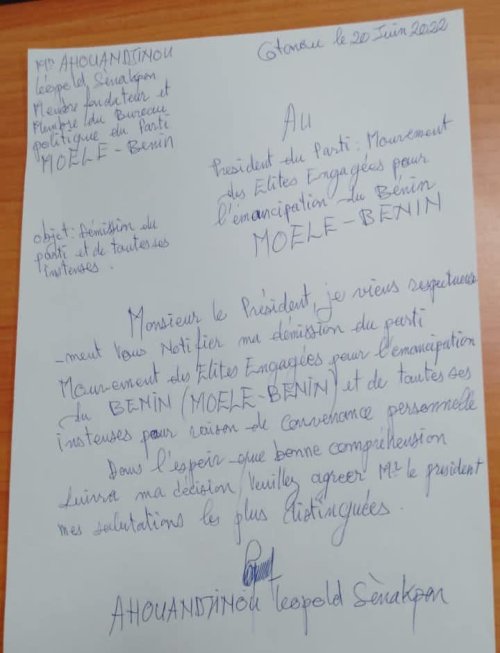 Mr AHOUANDJINOU
Léopold Sènakpon
Membre fondateur et
Membre du Bureau
politique du Parti
MOELE-Benin
Cotonou le 20 Juin 2022
Au
Président du Parti: Mouvement
des Elites Engagées pour
l'émancipation du Bénin
MOELE-BENIN
objet: Démission du
parti et de toutes ses
instenses.
Monsieur le Président, je viens respectueuse
-ment vous Notifier ma démission du parti
Mouvement des Elites Engagées pour l'émancipation
du BENIN (MOELE-BENIN) et de toutes ses
instenses pour raison de convenance personnelle
Dans l'espoir que bonne compréhension
suivra ma décision, Veuillez agreer Mr le président
mes salutations les plus distinguées.
AHOUANDJINOU Léopold Sènakpon